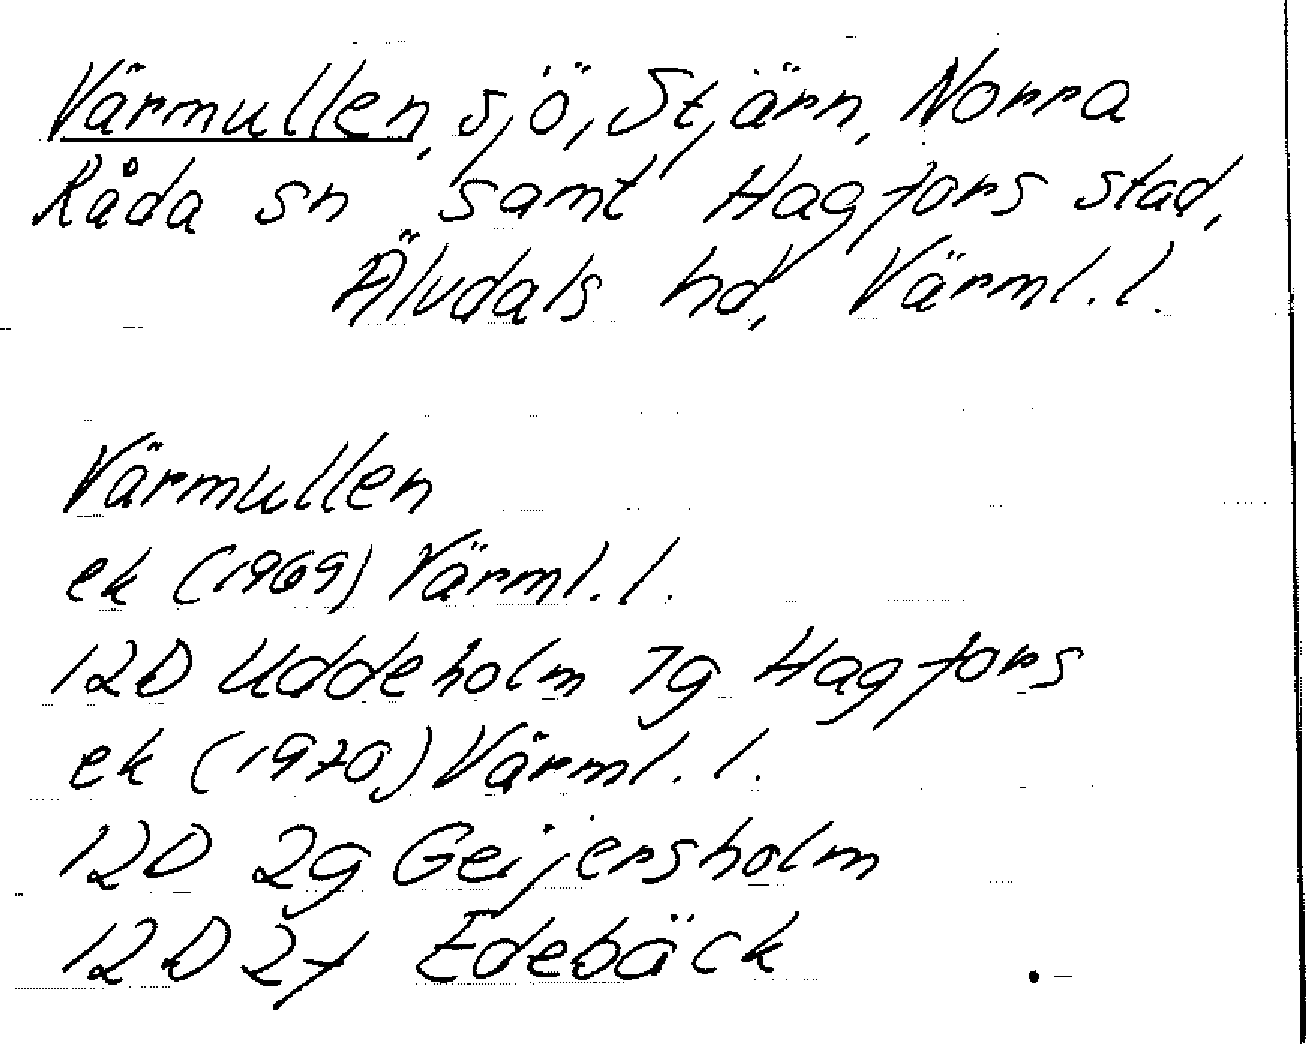 Värmullen, sjö, Stjärn, Norra
Råda sn samt Hagfors stad,
Älvdals hd, Värml. l.
Värmullen
ek (1969) Värml. l.
12D Uddeholm 1g Hagfors
ek (1970) Värml. l.
12D 2g Geijersholm
12D 2f Edebäck